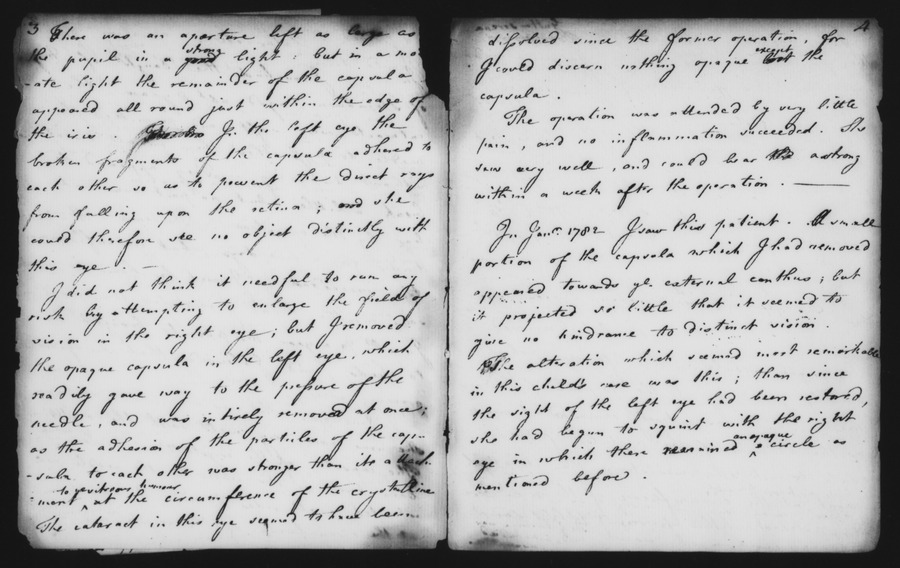 3 There was an aperture left as large as
the pupil in a strong light : but in a mo
-ate light the remainder of the capsula
appeared all round just within the edge of
the iris . In the left eye the
broken fragments of the capsula adhered to
each other so as to prevent the direct rays
from falling upon the retina ; and she
could therefore see no object distinctly with
this eye . —
I did not think it needful to run any
risk by attempting to enlarge the field of
vision in the right eye ; but I removed
the opaque capsula in the left eye , which
readily gave way to the pressure of the
needle , and was intirely removed at once ;
as the adhesion of the particles of the cap-
-sula to each other was stronger than its attach
to ye vitreous humour
-ment ^ at the circumference of the crystalline
The cataract in this eye seemed to have been
4
dissolved since the former operation , for
I could discern nothing opaque except the
capsula .
The operation was attended by very little
pain , and no inflammation succeeded . She
saw very well , and could bear a strong
within a week after the operation . —
In Jany. 1782 I saw this patient . A small
portion of the capsula which I had removed
appeared towards ye external canthus ; but
it projected so little that it seemed to
give no hindrance to distinct vision .
The alteration which seemed most remarkable
in this child's case was this ; than since
the sight of the left eye had been restored ,
she had begun to squint with the right
an opaque
eye in which there remained ^ circle as
mentioned before .